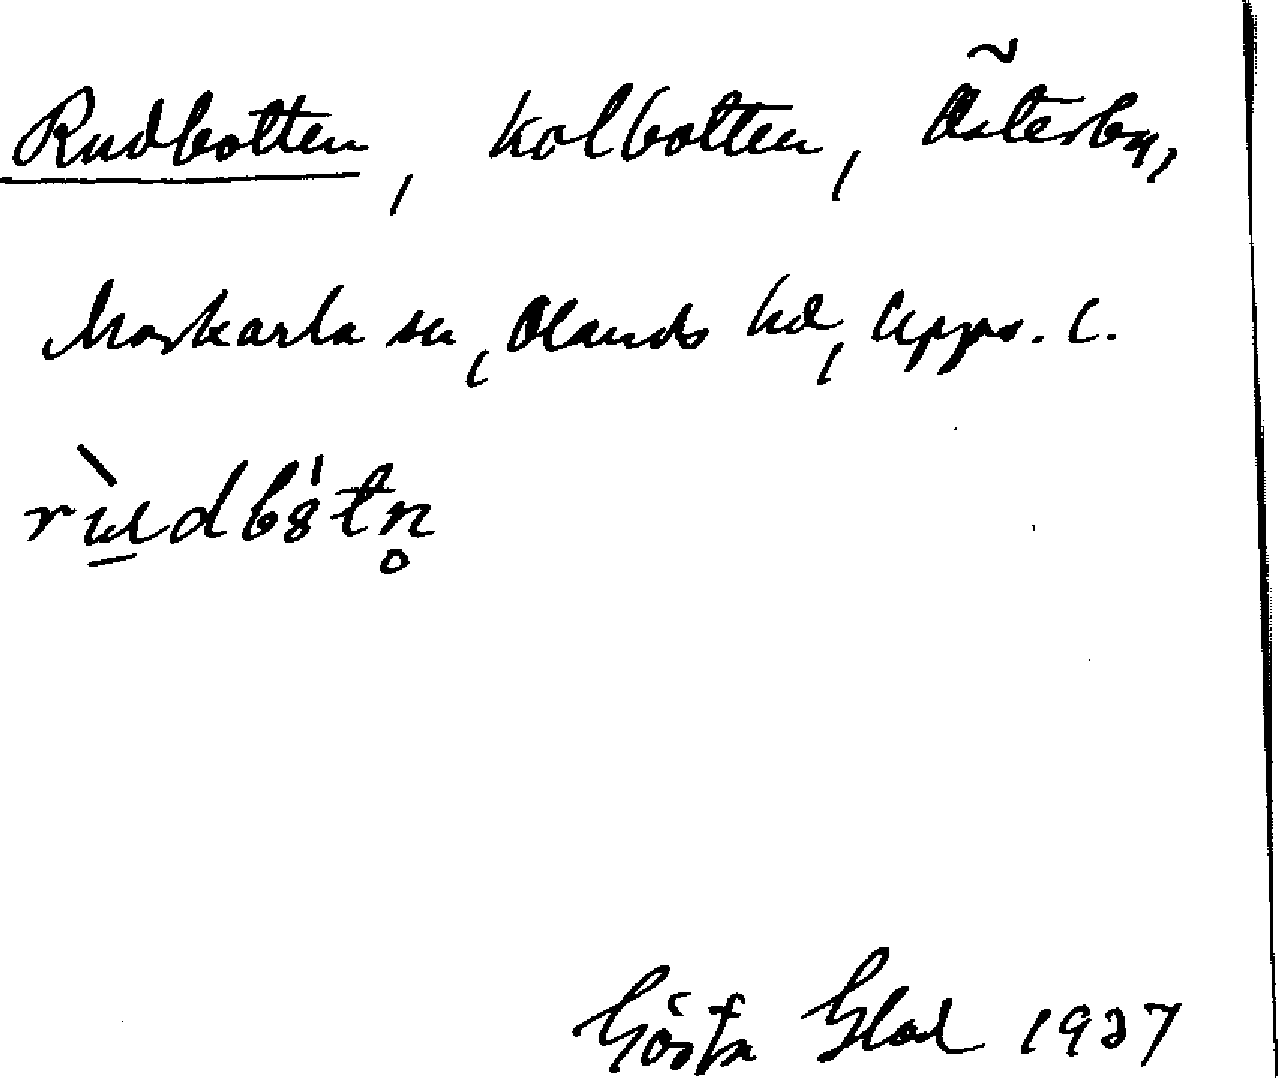 Rudbotten, kolbotten, Österby,
Morkarla sn, Olands hd, Upps. l.
rùdbø̍tn̥
Gösta Glad 1937